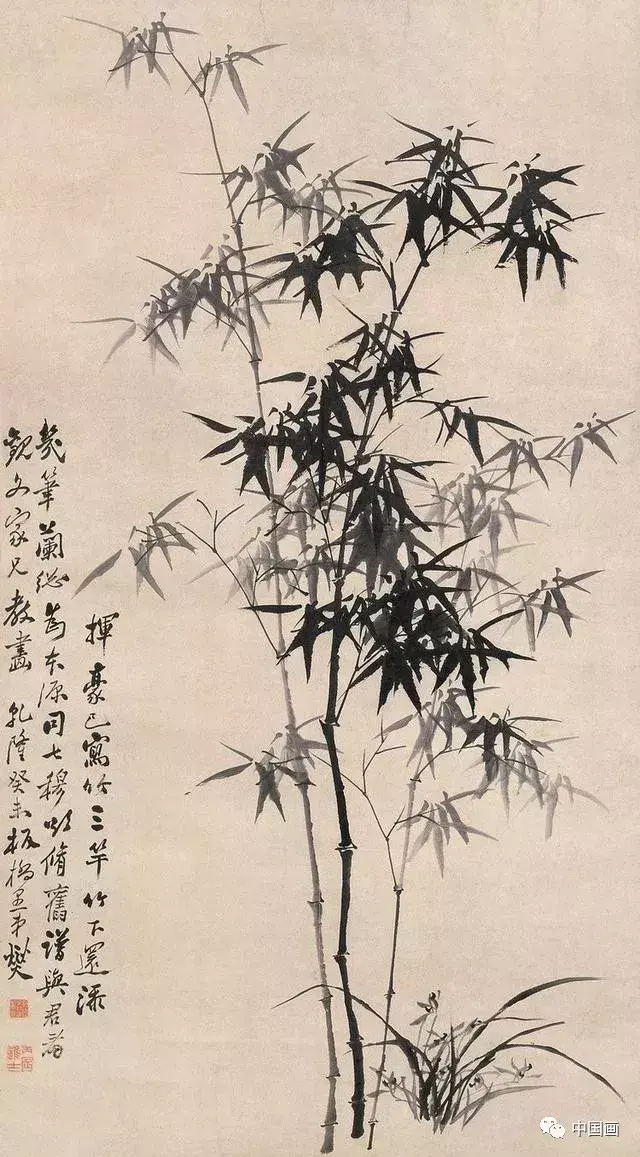 揮豪已寫竹三竿竹下還添
幾筆蘭總為本源同七穆欲脩舊譜與君看
觀文家兄教畫 乾隆癸未板橋愚弟燮
中国画